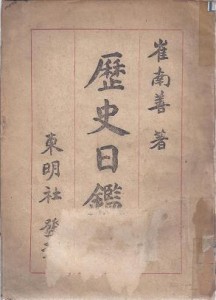 崔南善 著
歷史日鑑
東明社 發